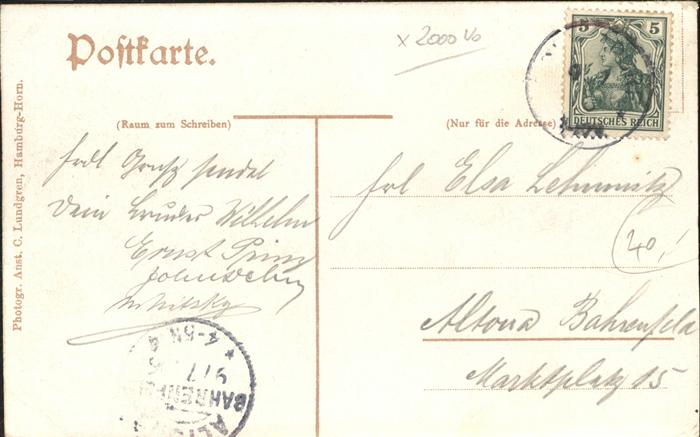 Postkarte.
x 2000 Vo
5 5
DEUTSCHES REICH
(Raum zum Schreiben)
(Nur für die Adresse)
Photogr. Anst. C. Lundgren, Hamburg-Horn.
frdl Gruß sendet
Dein Bruder Wilhelm
Ernst Prinz
Frl Elsa Lehmnitz
40,-
Altona Bahrenfeld
Marktplatz 15
* 4-5N
9/7
BAHRENF
ALTO